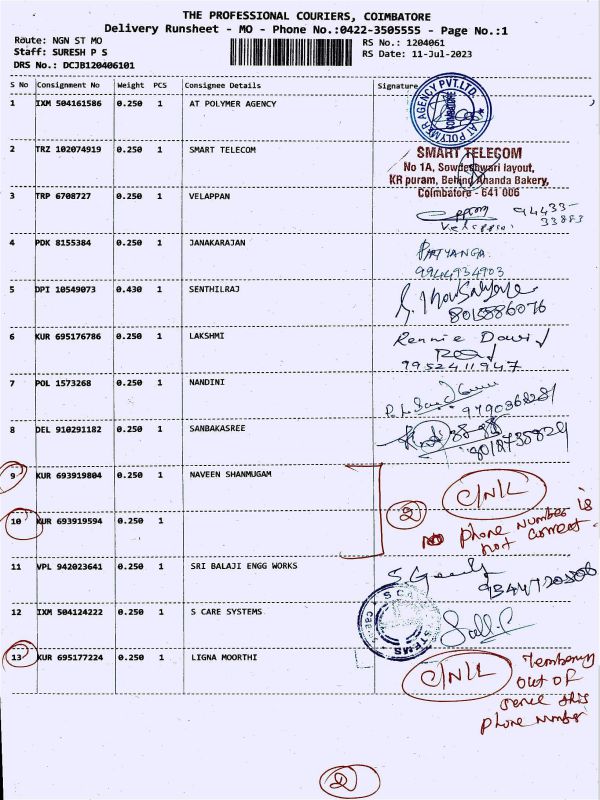 THE PROFESSIONAL COURIERS, COIMBATORE
Delivery Runsheet - MO - Phone No.:0422-3505555 - Page No.:1
Route: NGN ST MO
Staff: SURESH P S
DRS No.: DCJB120406101
RS No.: 1204061
RS Date: 11-Jul-2023
S No Consignment No Weight PCS Consignee Details Signature
1 IXM 504161586 0.250 1 AT POLYMER AGENCY
AT POLYMER AGENCY PVT.LTD.
COIMBATORE
2 TRZ 102074919 0.250 1 SMART TELECOM
SMART TELECOM
No 1A, Sowdeshwari layout,
KR puram, Behind Ananda Bakery,
Coimbatore - 641 006
3 TRP 6708727 0.250 1 VELAPPAN
94433-
33883
4 PDK 8155384 0.250 1 JANAKARAJAN
9944934903
5 DPI 10549073 0.430 1 SENTHILRAJ
8015586076
6 KUR 695176786 0.250 1 LAKSHMI
Rennie David
9952411947
7 POL 1573268 0.250 1 NANDINI
8 DEL 910291182 0.250 1 SANBAKASREE
9 KUR 693919804 0.250 1 NAVEEN SHANMUGAM
C/N/L
2
10 KUR 693919594 0.250 1
phone number is
not correct.
11 VPL 942023641 0.250 1 SRI BALAJI ENGG WORKS
12 IXM 504124222 0.250 1 S CARE SYSTEMS
13 KUR 695177224 0.250 1 LIGNA MOORTHI
C/N/L
out of
this
phone number
2